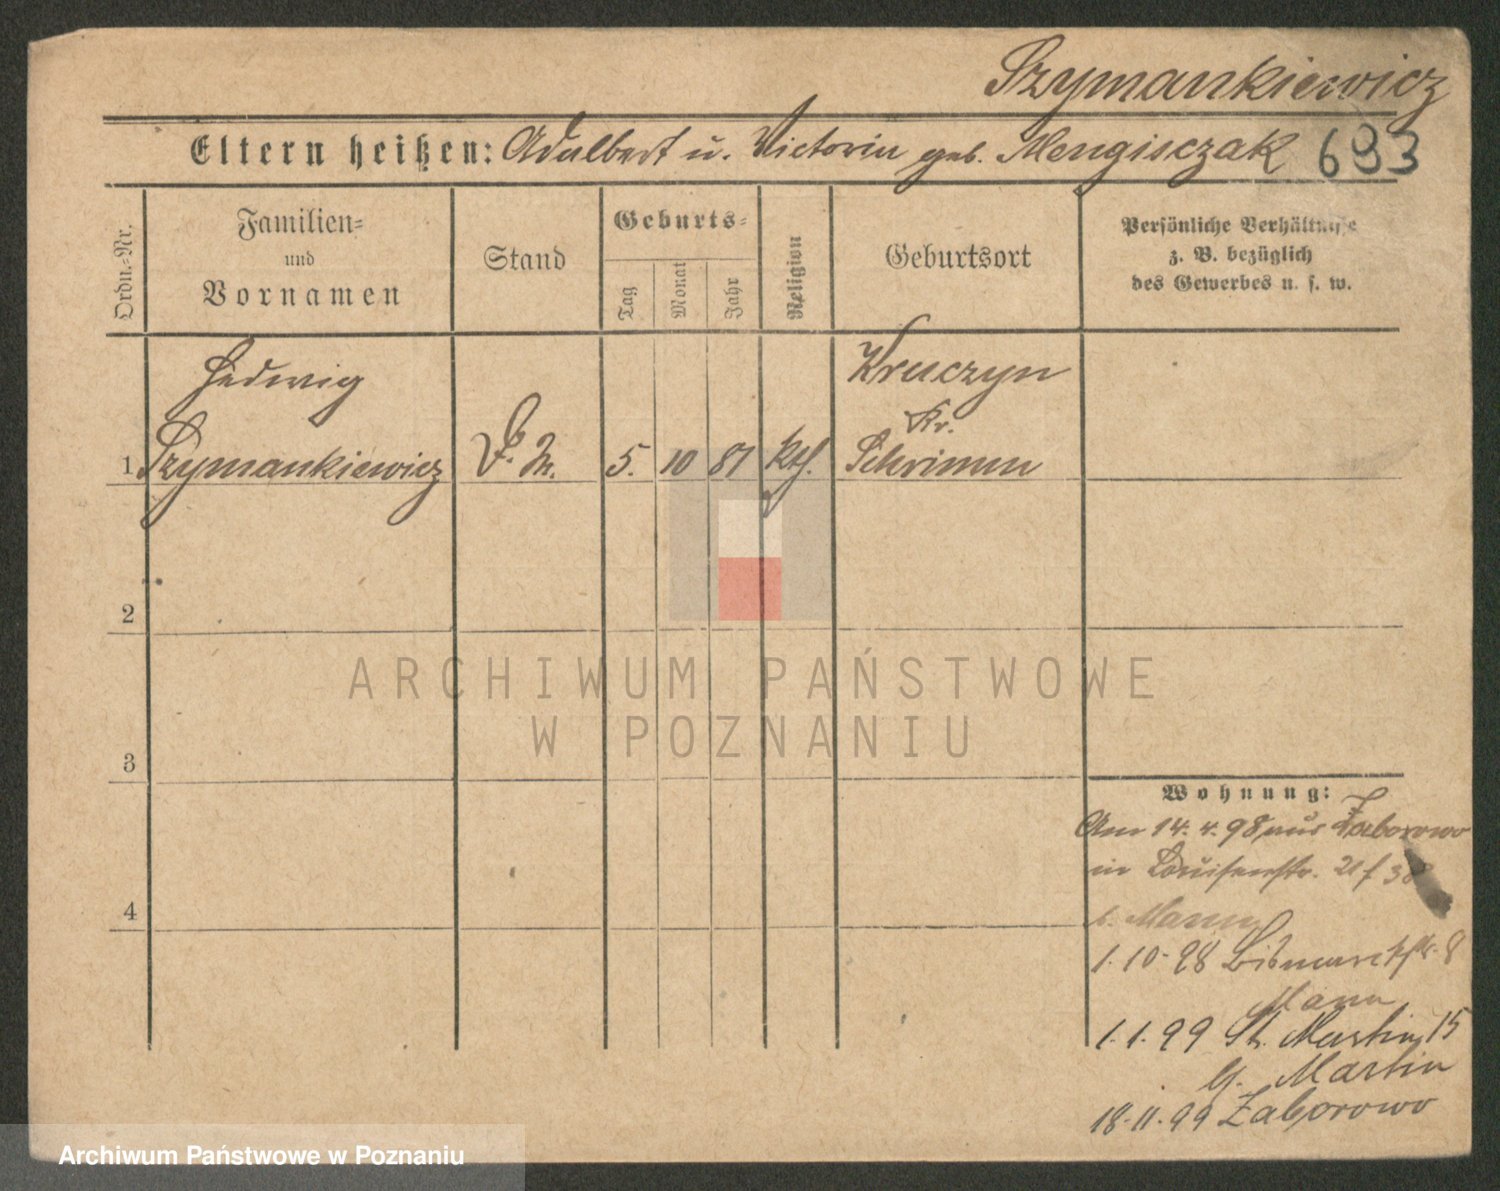 Szymankiewicz
Eltern heißen: Adalbert u. Victoria geb. Mengisczak 693
Ordn.-Nr.
Familien-
und
Vornamen
Stand
Geburts-
Tag
Monat
Jahr
Religion
Geburtsort
Persönliche Verhältnisse
z. B. bezüglich
des Gewerbes u. s. w.
Hedwig Kruczyn
Kr.
1 Szymankiewicz D. M. 5. 10 81 kth. Schrimm
2
3
4
Wohnung:
Am 14. 4. 98 aus Zaborowo
in Louisenstr.
b. Mann
1. 10. 98 Bismarckstr. 8
Mann
1. 1. 99 St. Martin 15
Martin
18. 11. 99 Zaborowo
ARCHIWUM PAŃSTWOWE
W POZNANIU
Archiwum Państwowe w Poznaniu